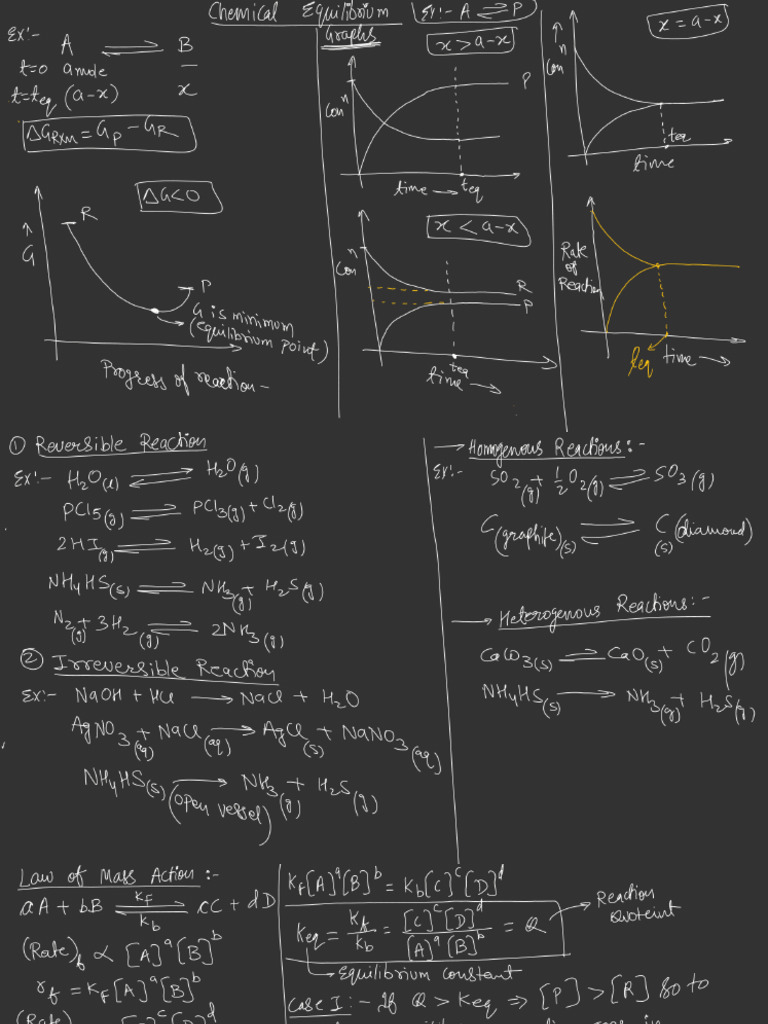 Chemical Equilibrium
Ex:- A ⇌ P
Ex:-
A ⇌ B
t=0 a mole —
t=teq (a-x) x
ΔGRxn = GP - GR
ΔG<0
↑ G
R
P
G is minimum
(equilibrium point)
Progress of reaction -
Graphs
x > a-x
Conⁿ
P
time → teq
x < a-x
Conⁿ
R
P
teq
time →
x = a-x
↑ Conⁿ
teq
time
Rate
of
Reaction
teq
time →
① Reversible Reaction
Ex:- H2O(l) ⇌ H2O(g)
PCl5(g) ⇌ PCl3(g) + Cl2(g)
2HI(g) ⇌ H2(g) + I2(g)
NH4HS(s) ⇌ NH3(g) + H2S(g)
N2(g) + 3H2(g) ⇌ 2NH3(g)
② Irreversible Reaction
Ex:- NaOH + HCl → NaCl + H2O
AgNO3(aq) + NaCl(aq) → AgCl(s) + NaNO3(aq)
NH4HS(s) → NH3(g) + H2S(g)
(open vessel)
→ Homogenous Reactions:-
Ex:- SO2(g) + 1/2 O2(g) ⇌ SO3(g)
C(graphite)(s) ⇌ C(s)(diamond)
→ Heterogenous Reactions:-
CaCO3(s) ⇌ CaO(s) + CO2(g)
NH4HS(s) → NH3(g) + H2S(g)
Law of Mass Action:-
aA + bB ⇌ cC + dD
kF
kb
(Rate)f ∝ [A]^a [B]^b
rf = kF [A]^a [B]^b
[C]^c [D]^d
kF [A]^a [B]^b = kb [C]^c [D]^d
Keq = kf/kb = [C]^c [D]^d / [A]^a [B]^b = Q
→ Reaction
Quoteint
→ Equilibrium constant
Case I:- If Q > Keq ⇒ [P] > [R] so to